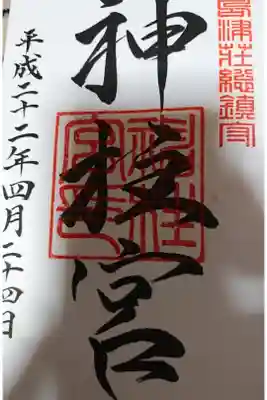 島津荘總鎮守
神柱宮
平成二十二年四月二十四日